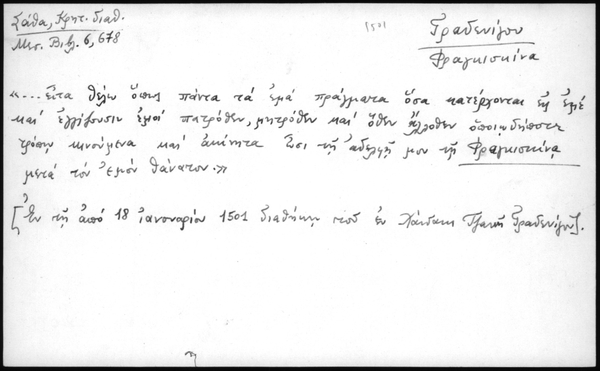 Σάθα, Κρητ. διαθ.
Μεσ. Βιβλ. 6, 678
1501
Γραδενίγου
Φραγκισκίνα
«... εἶτα θέλω ὅπως πάντα τὰ ἐμὰ πράγματα ὅσα κατέρχονται εἰς ἐμὲ
καὶ ἐγγίζουσιν ἐμοὶ πατρόθεν, μητρόθεν καὶ ὅθεν ἄλλοθεν ὁποιῳδήποτε
τρόπῳ κινούμενα καὶ ἀκίνητα ὦσι τῇ ἀδελφῇ μου τῇ Φραγκισκίνᾳ
μετὰ τὸν ἐμὸν θάνατον.»
[Ἐν τῇ ἀπὸ 18 ἰανουαρίου 1501 διαθήκῃ τοῦ ἐν Χάνδακι Τζανῆ Γραδενίγου].